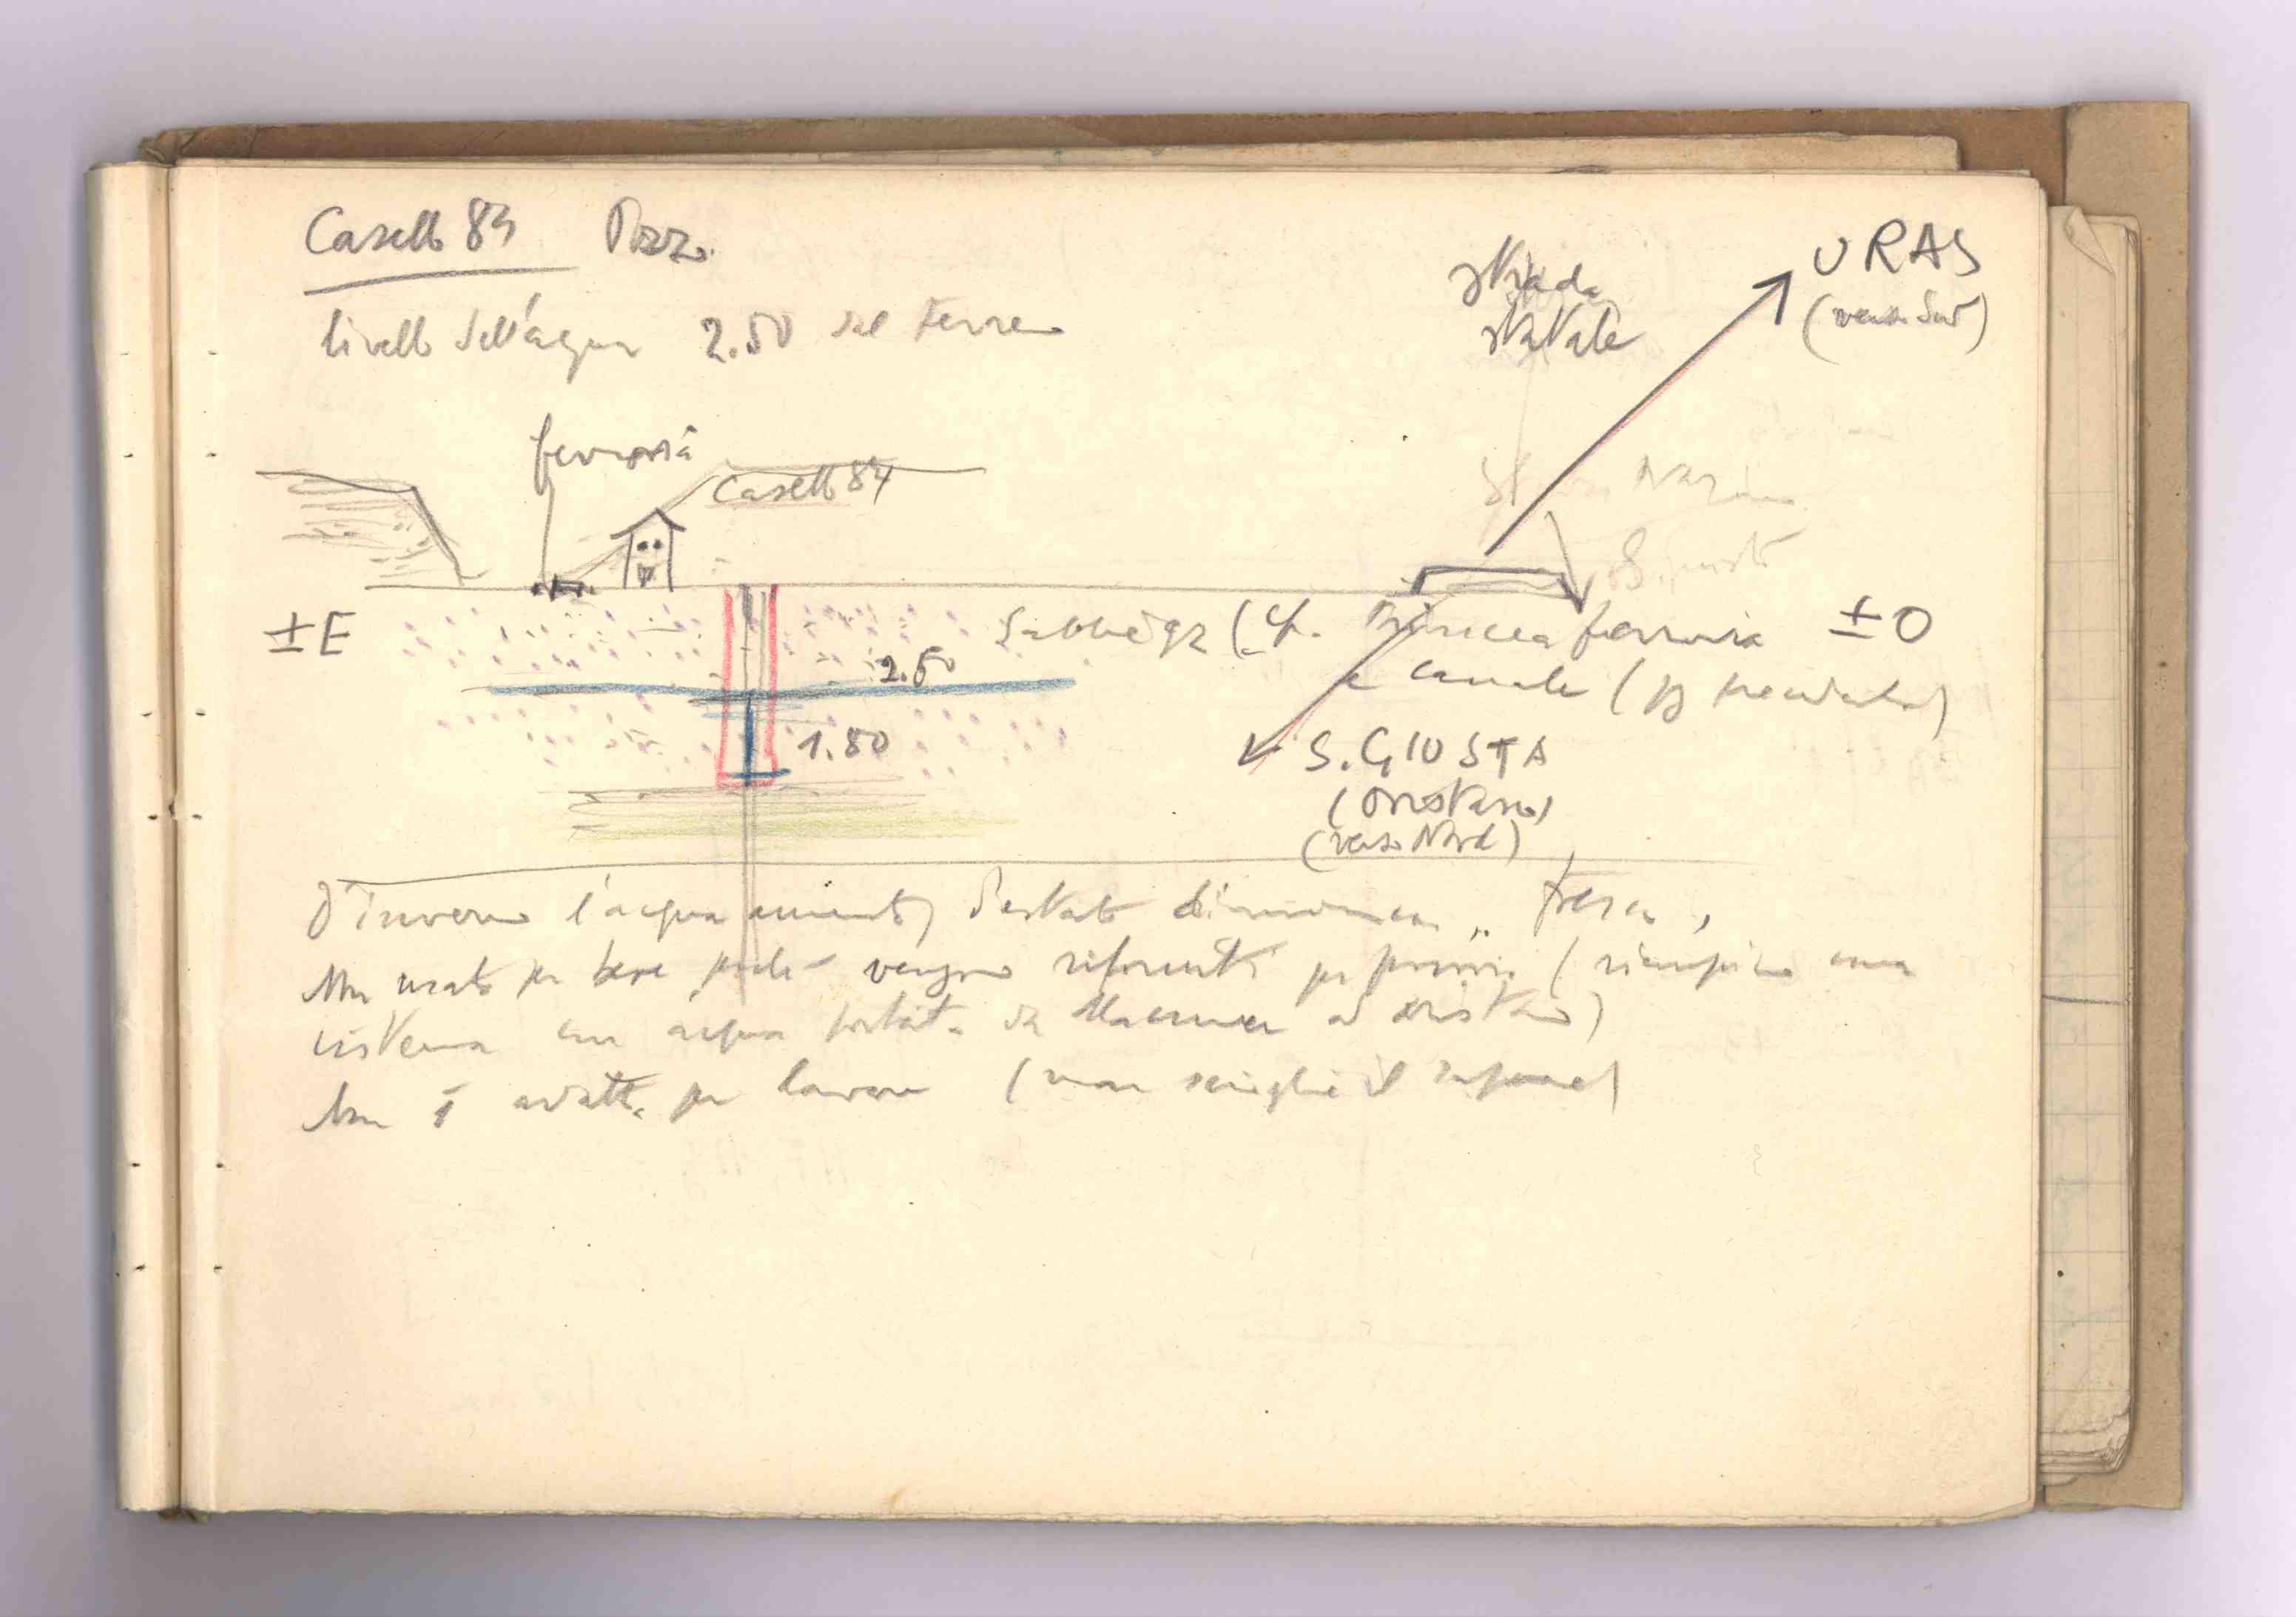 Casello 84 Pozzo
livello dell'acqua 2.50 dal terreno
strada
statale
URAS
(verso Sud)
ferrovia
Casello 84
±E
Sabbie qz (cf. Trincea ferrovia ±O
e canale (pg precedente)
2.50
1.80
S. GIUSTA
(Oristano)
(verso Nord)
D'inverno l'acqua aumenta, d'estate diminuisce fresca,
Non usata per bere perché vengono riforniti (riempiono una
cisterna con acqua portata da Macomer ad Oristano)
Non è adatta per lavare (non scioglie il sapone)